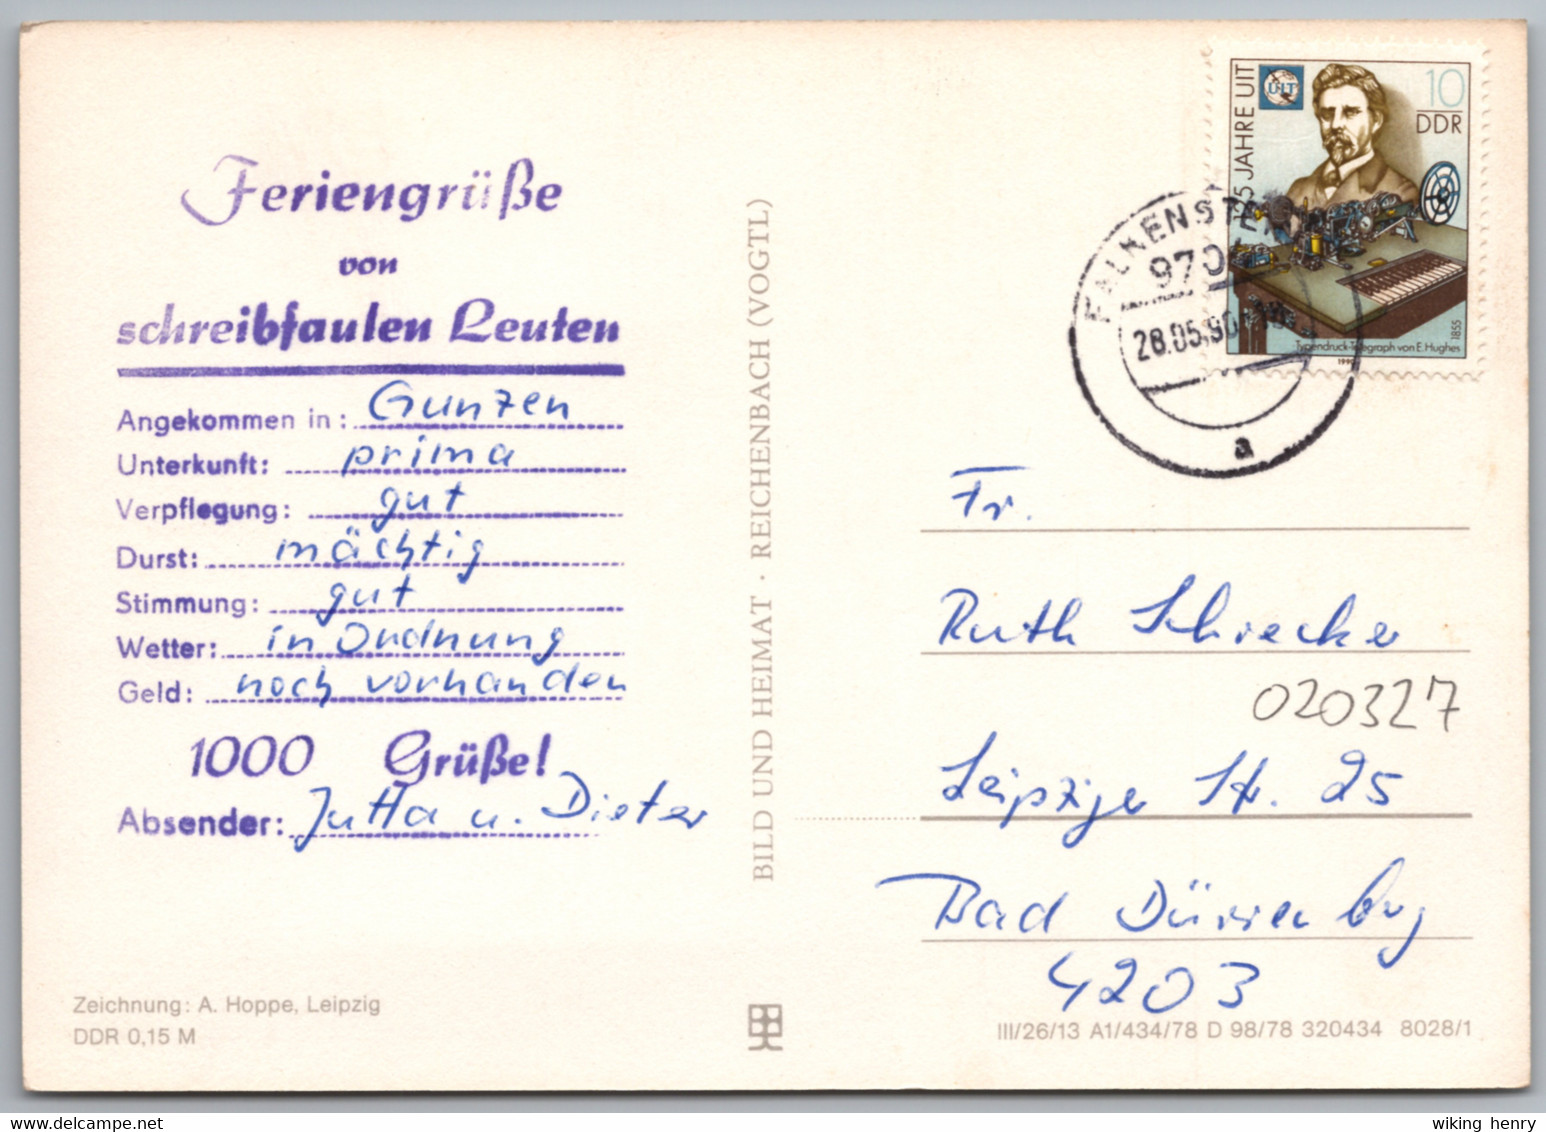 Feriengrüße
von
schreibfaulen Leuten
Angekommen in: Gunzen
Unterkunft: prima
Verpflegung: gut
Durst: mächtig
Stimmung: gut
Wetter: in Ordnung
Geld: noch vorhanden
1000 Grüße!
Absender: Jutta u. Dieter
Zeichnung: A. Hoppe, Leipzig
DDR 0,15 M
BILD UND HEIMAT · REICHENBACH (VOGTL)
125 JAHRE UIT
UIT
10
DDR
Typendruck-Telegraph von E. Hughes
1855
1990
FALKENSTEIN
970
28.05.90
a
Fr.
Ruth Schrecker
020327
Leipziger Str. 25
Bad Dürrenbg
4203
III/26/13 A1/434/78 D 98/78 320434 8028/1
wiking henry